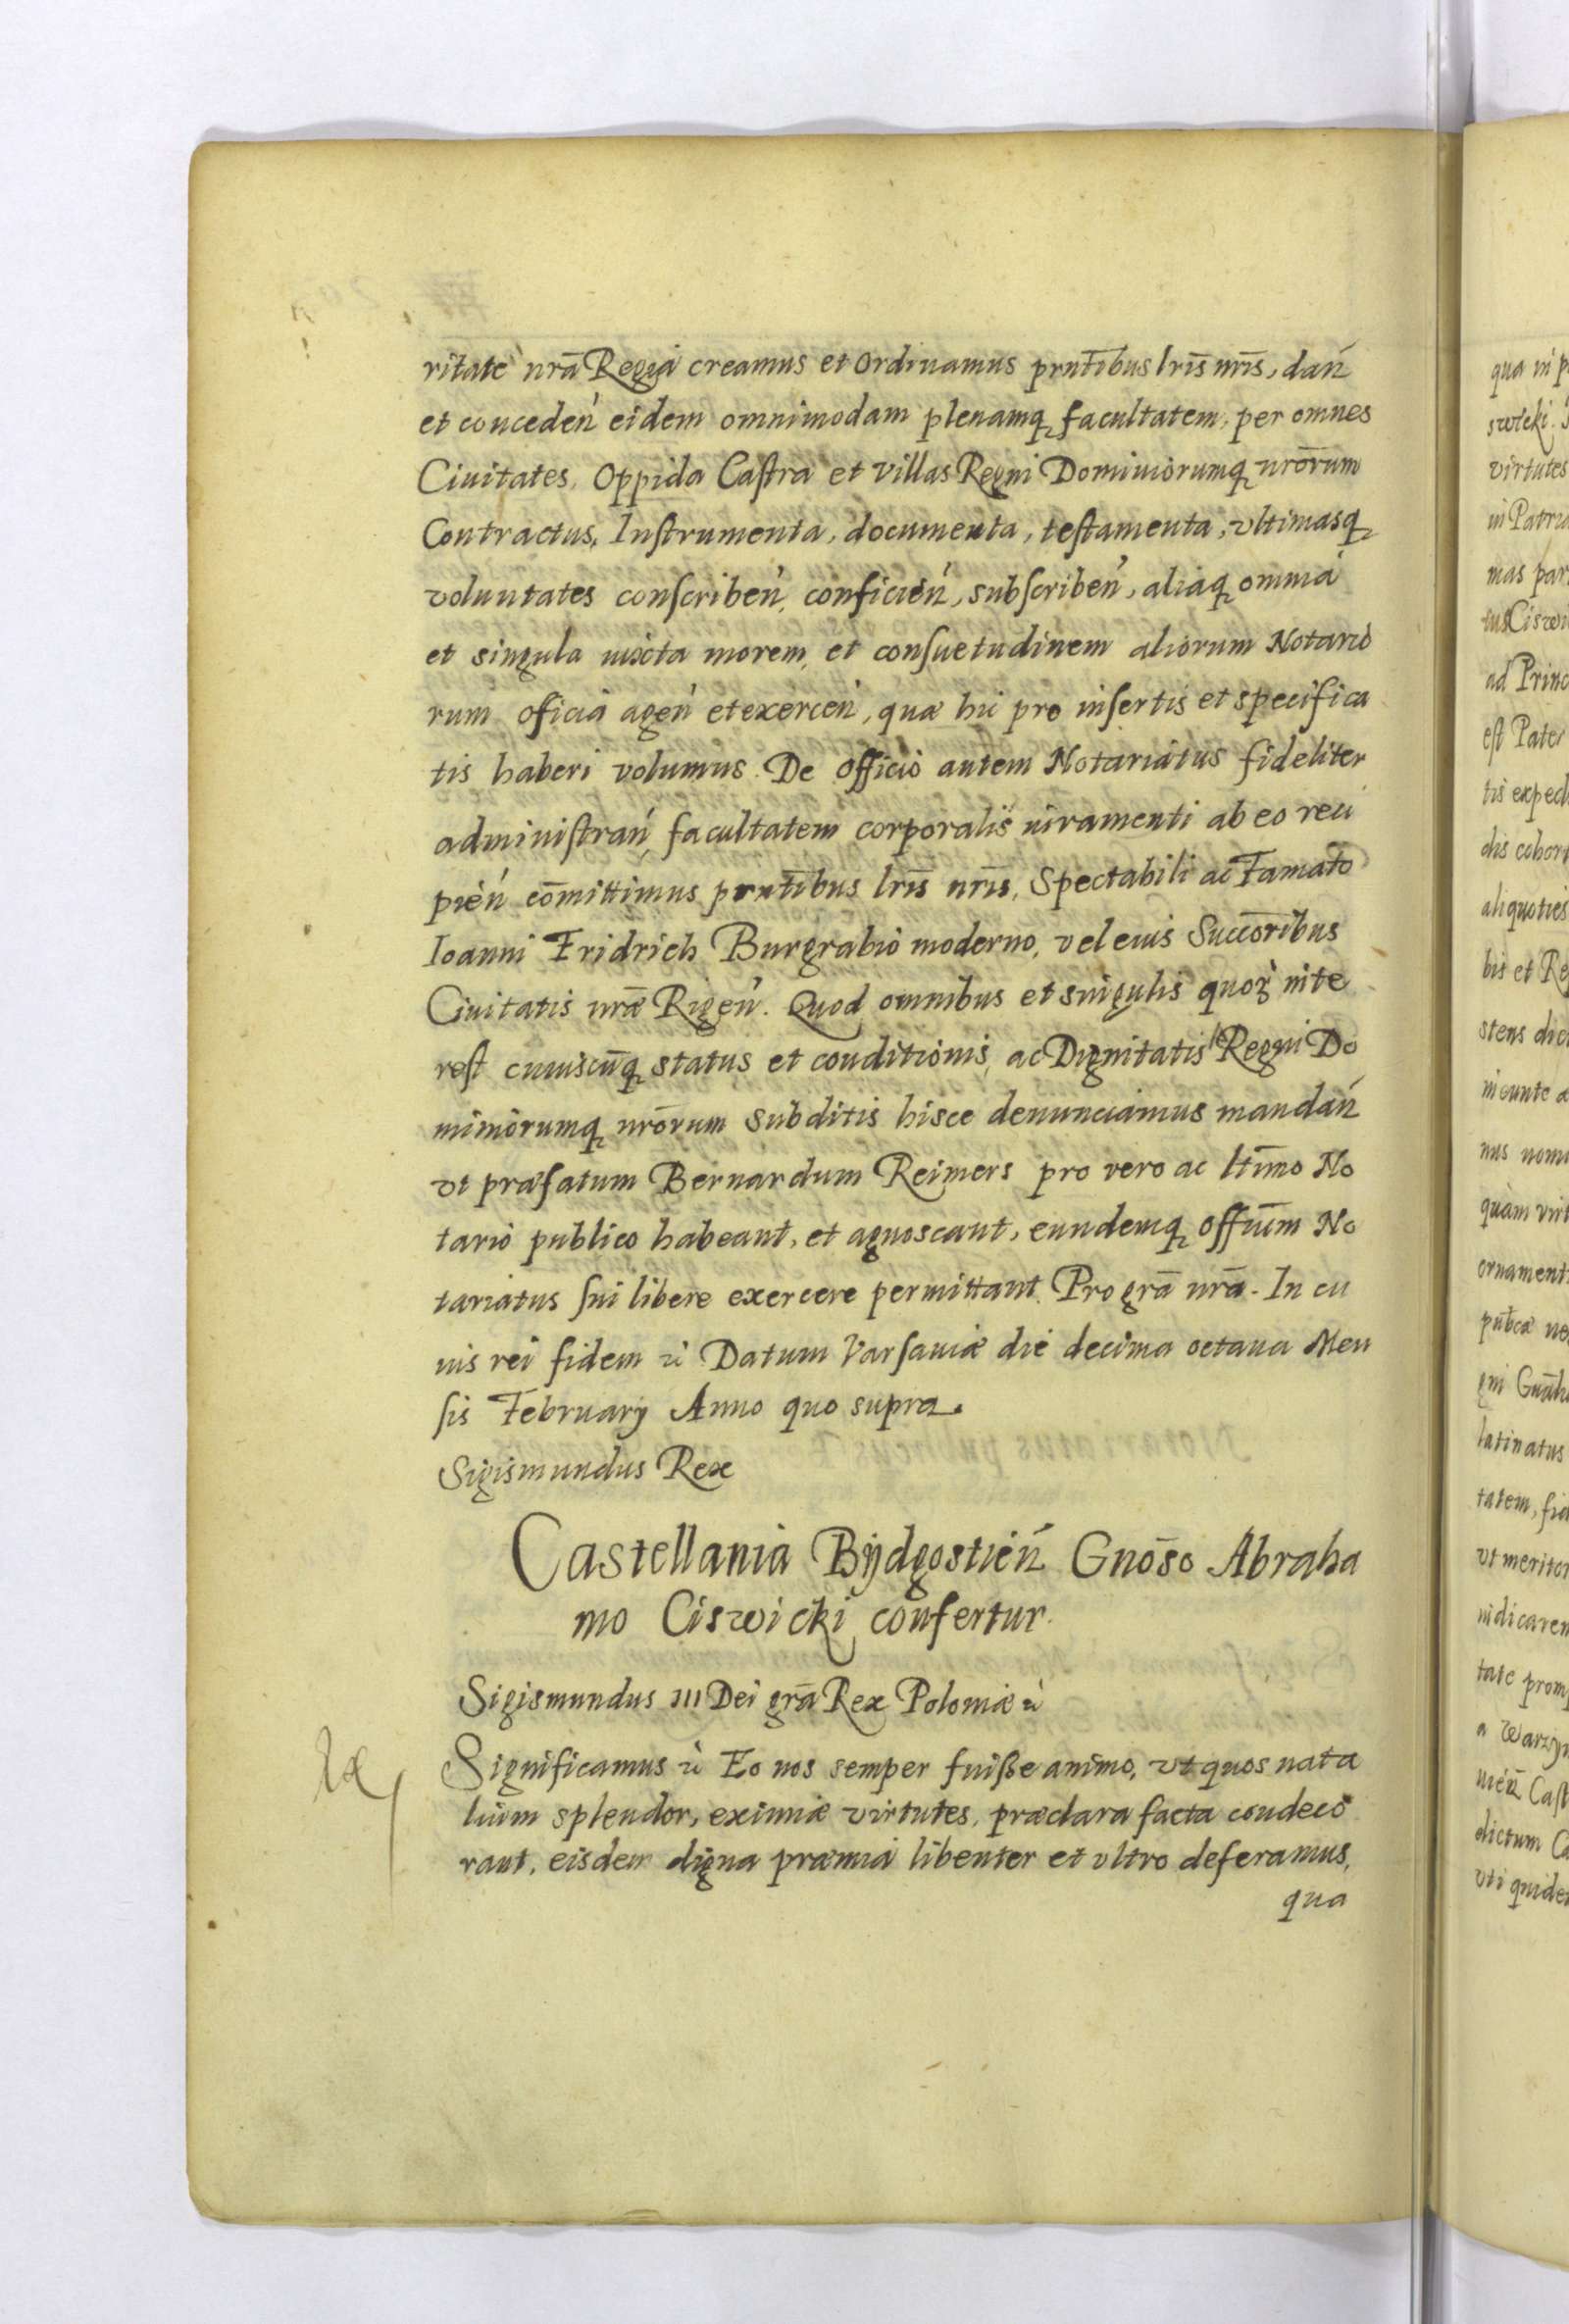 ritate nrã Regia creamus et ordinamus prnt̃ibus lris̃ nris̃, dań
et conceden̕ eidem omnimodam plenamq facultatem, per omnes
Ciuitates, Oppida Castra et villas Regni Dominiorumq nrõrum
Contractus, Instrumenta, documenta, testamenta, vltimasq
voluntates conscriben̕, conficień, subscriben̕, aliaq omnia
et singula iuxta morem, et consuetudinem aliorum Notario
rum oficia agen̕ et exercen̕, quæ hic pro insertis et specifica
tis haberi volumus. De officio autem Notariatus fideliter
administrań, facultatem corporalis iuramenti ab eo reci
pień cõmittimus prnt̃ibus lris̃ nris̃, Spectabili ac Famato
Ioanni Fridrich Burgrabio moderno, vel eius Succõribus
Ciuitatis nræ̃ Rigen̕. Quod omnibus et singulis quoꝝ inte
rest cuiuscũq status et conditionis, ac Dignitatis Regni Do
miniorumq nrõrum subditis hisce denunciamus mandań
vt præfatum Bernardum Reimers pro vero ac ltĩmo No
tario publico habeant, et agnoscant, eundemq offiũm No
tariatus sui libere exercere permittant. Pro grã nrã. In cu
ius rei fidem ꝛc Datum Varsauiæ die decima octaua Men
sis February Anno quo supra.
Sigismundus Rex
Castellania Bijdgostień Gnõso Abraha
mo Ciswicki confertur.
Sigismundus III Dei grã Rex Poloniæ ꝛc
Significamus ꝛc Eo nos semper fuiße animo, vt quos nata
lium splendor, eximiæ virtutes, præclara facta condeco
rant, eisdem digna præmia libenter et vltro deferamus,
qua